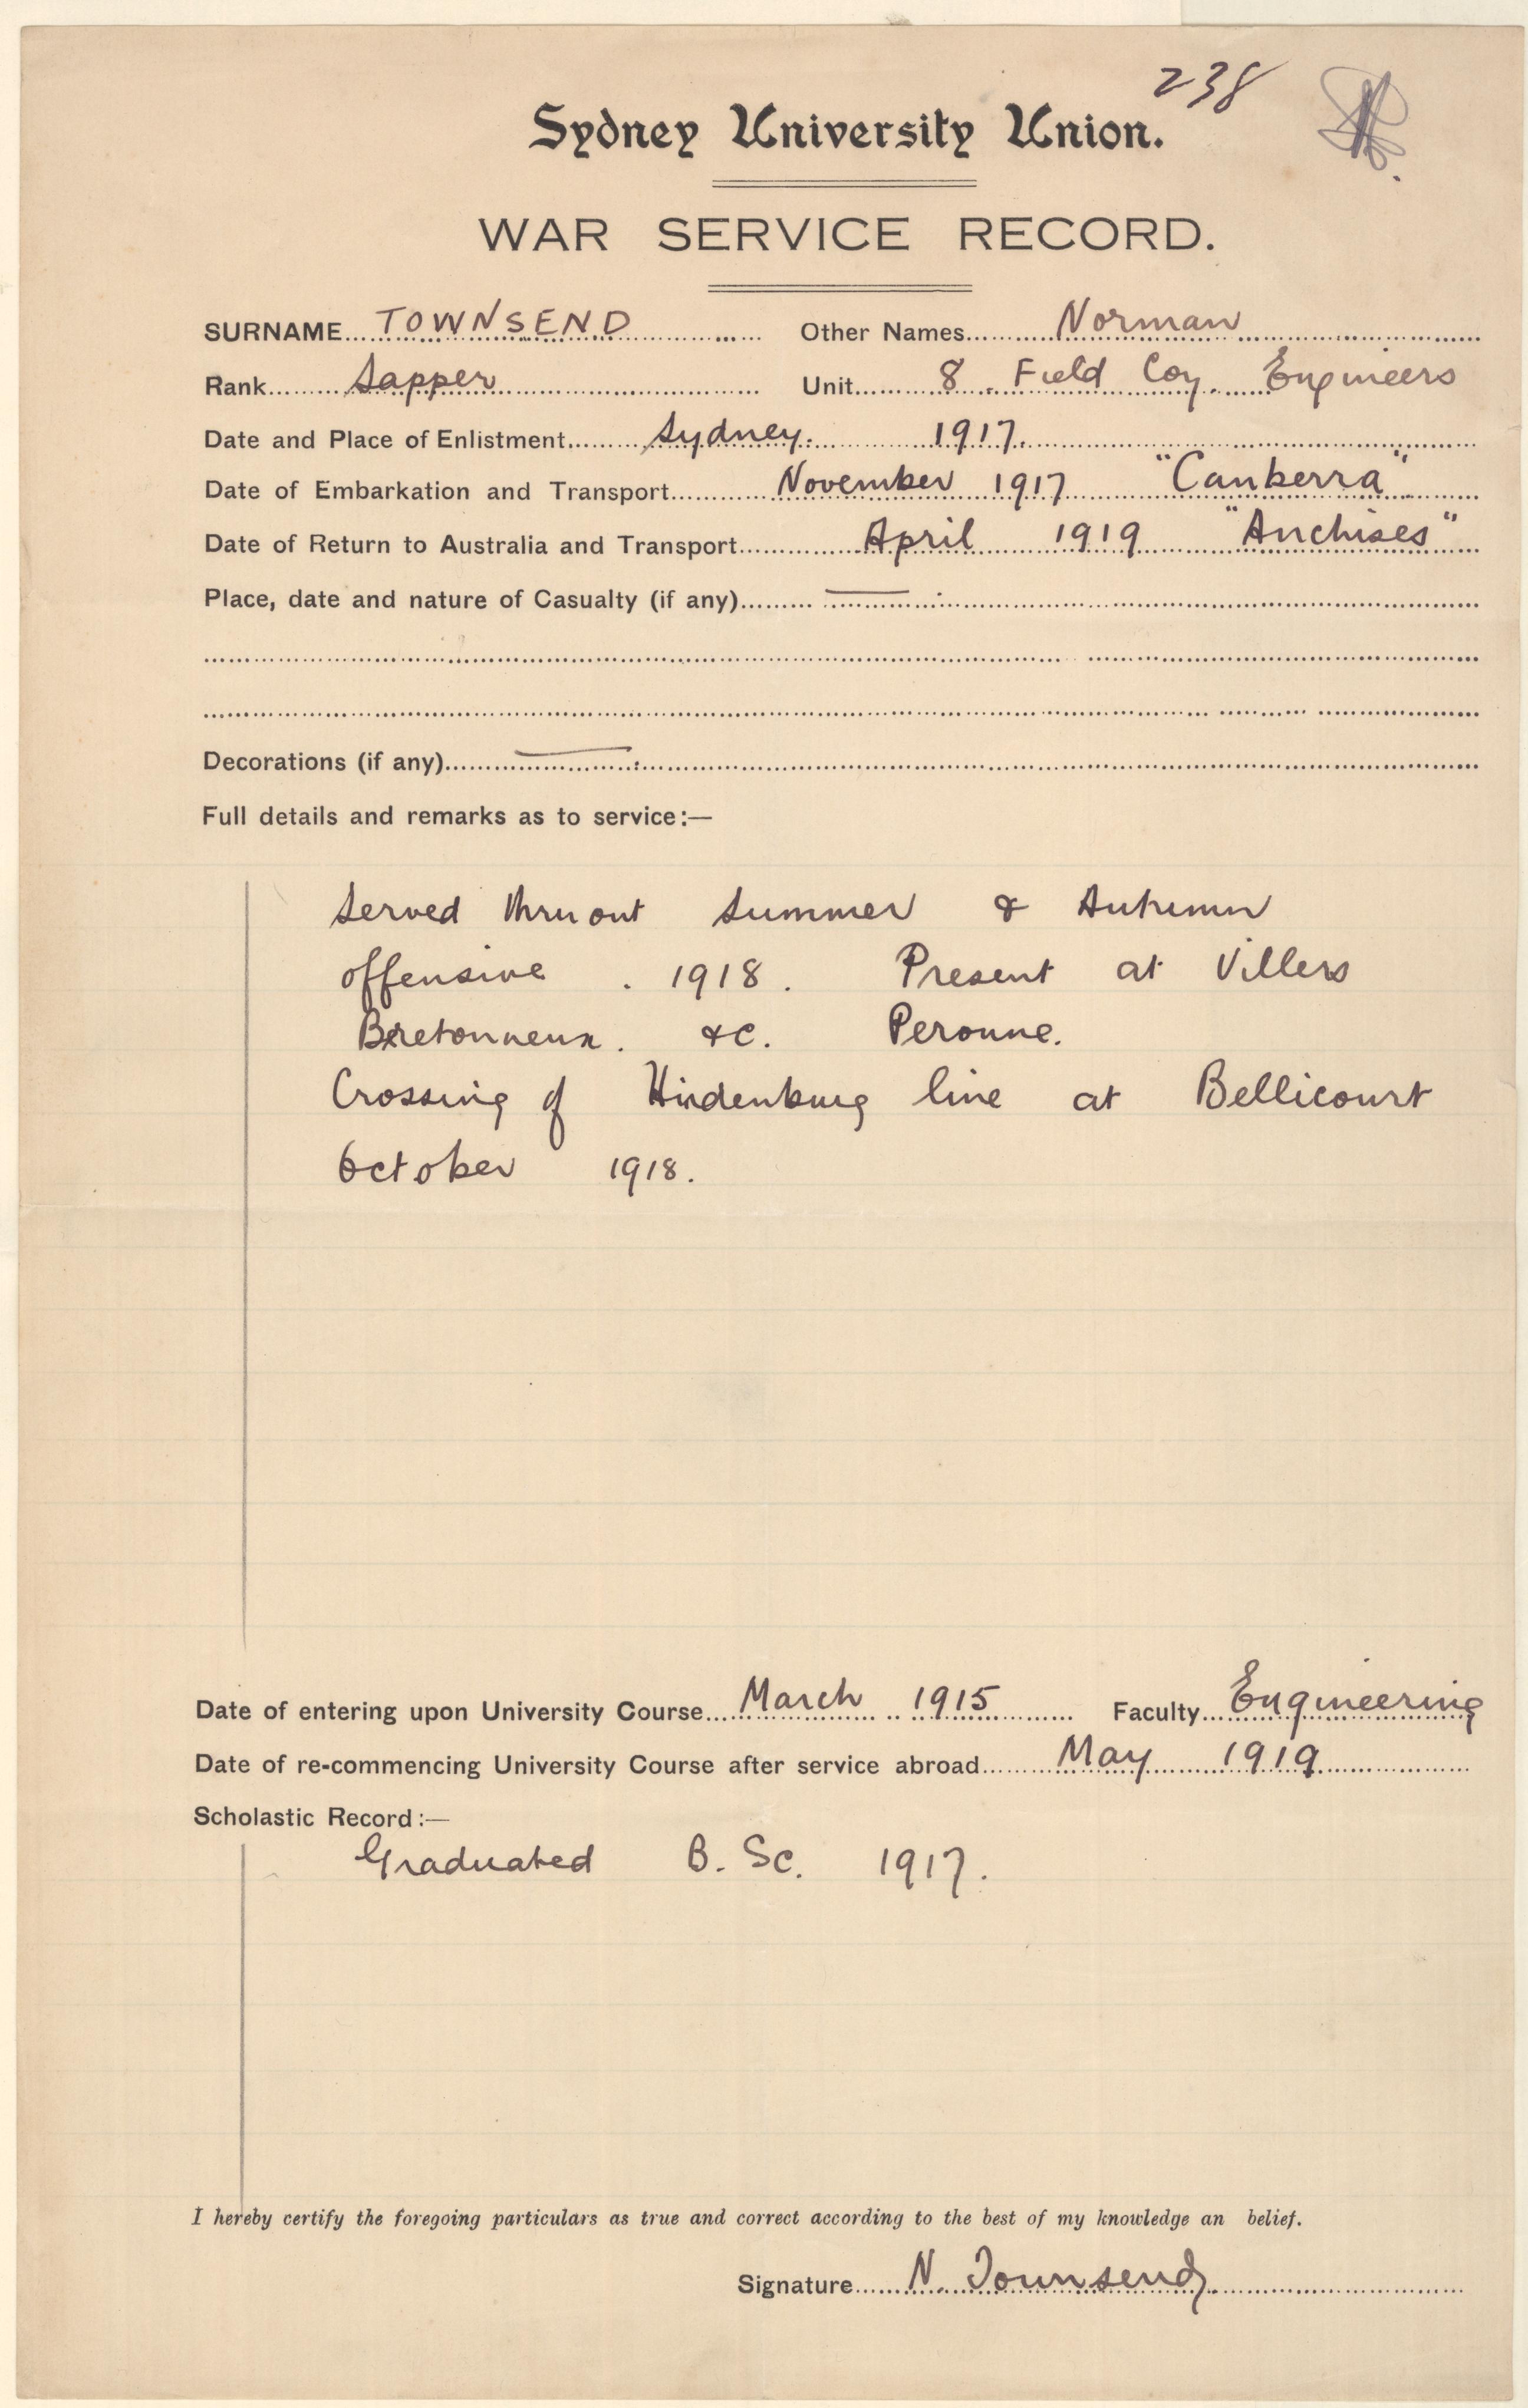 238
Sydney University Union.
WAR SERVICE RECORD.
SURNAME TOWNSEND Other Names Norman
Rank Sapper Unit 8. Field Coy. Engineers
Date and Place of Enlistment Sydney. 1917.
Date of Embarkation and Transport November 1917 "Canberra"
Date of Return to Australia and Transport April 1919 "Anchises"
Place, date and nature of Casualty (if any) —
Decorations (if any) —
Full details and remarks as to service:—
Served thruout Summer & Autumn
offensive . 1918 . Present at Villers
Bretonneux . &c. Peronne.
Crossing of Hindenburg line at Bellicourt
October 1918.
Date of entering upon University Course March 1915 Faculty Engineering
Date of re-commencing University Course after service abroad May 1919
Scholastic Record:—
Graduated B. Sc. 1917.
I hereby certify the foregoing particulars as true and correct according to the best of my knowledge an belief.
Signature N. Townsend